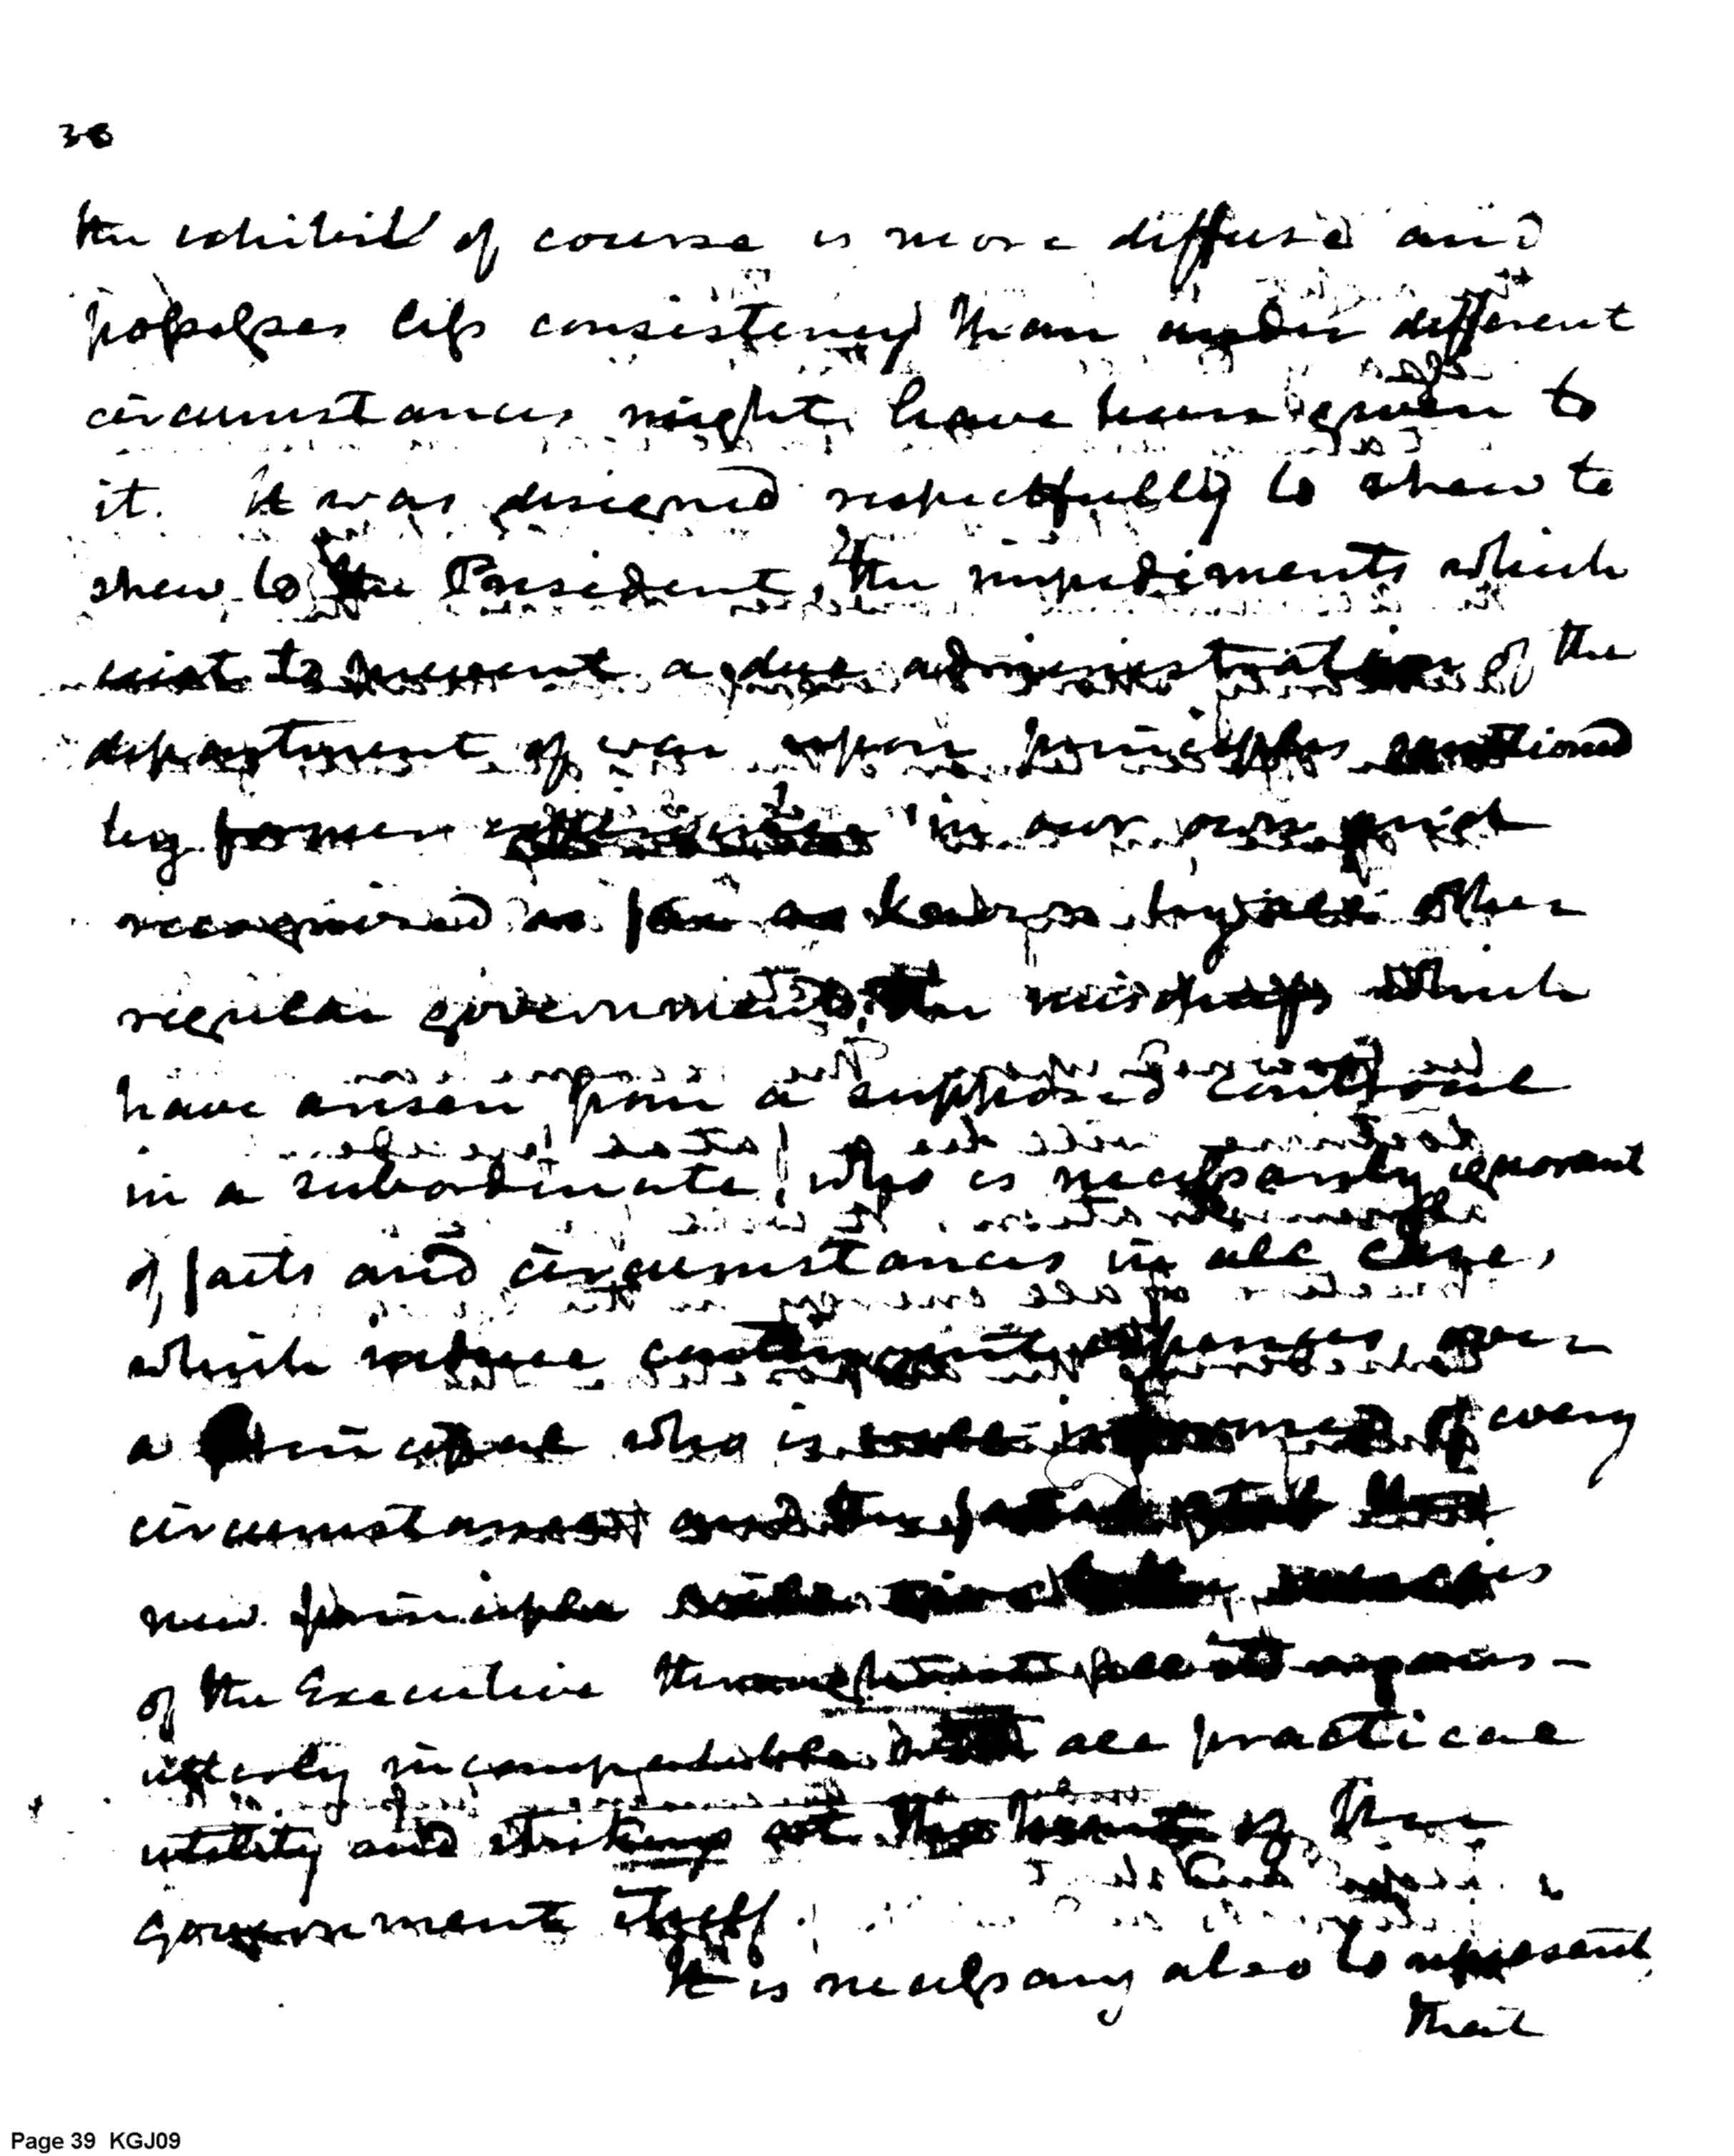 38
the exhibit of course is more diffuse and
possesses less consistency than under different
circumstances might have been given to
it. It was designed respectfully to shew to
shew to the President, the impediments which
exist to prevent a due administration of the
department of war upon principles sanctioned
by former in our own and
recognized as far as known by all other
regular governments, the mischiefs which
have arisen from a supposed controul
in a subordinate, who is necessarily ignorant
of facts and circumstances in all cases,
which induce contingent expenses over
a principal who is well informed of every
circumstance and the that
new principle
of the Executive through all its organs
utterly incompatible with all practical
utility and striking at the heart of the
government itself.
It is necessary also to represent,
that
Page 39 KGJ09